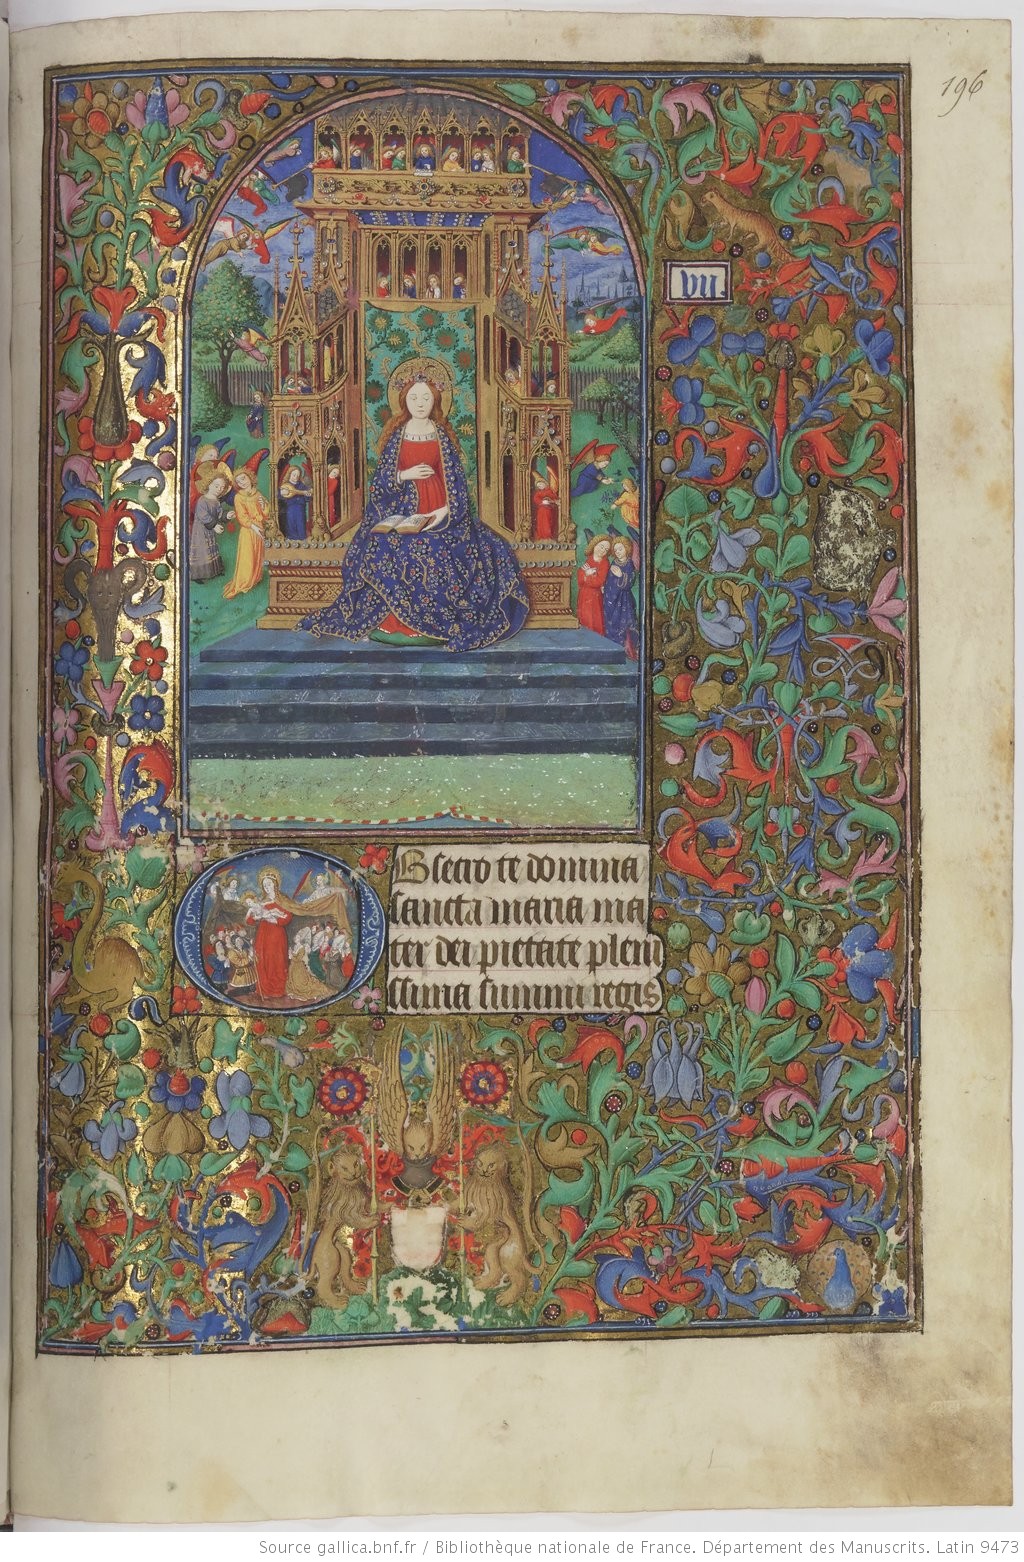 196
vii.
Obsecro te domina
sancta maria ma
ter dei pietate pleni
ssima summi regis
Source gallica.bnf.fr / Bibliothèque nationale de France. Département des Manuscrits. Latin 9473